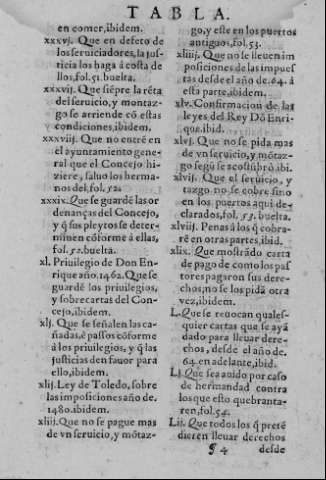 TABLA.
en comer, ibidem.
xxxvj. Que en defeto de
los seruiciadores, la jus
ticia los haga á costa de
llos, fol. 51. buelta.
xxxvij. Que siẽpre la rẽta
del seruicio, y montaz-
go se arriende cõ estas
condiciones, ibidem.
xxxviij. Que no entrẽ en
el ayuntamiento gene-
ral que el Concejo hi-
ziere, saluo los herma-
nos del, fol. 52.
xxxix. Que se guardẽ las or
denanças del Concejo,
y q̃ sus pleytos se deter-
minen cõforme á ellas,
fol. 52. buelta.
xl. Priuilegio de Don En-
rique año. 1462. Que se
guardẽ los priuilegios,
y sobrecartas del Con-
cejo, ibidem.
xlj. Que se señalen las ca-
ñadas, ẽ passos cõforme
á los priuilegios, y q̃ las
justicias den fauor para
ello, ibidem.
xlij. Ley de Toledo, sobre
las imposiciones año de.
1480. ibidem.
xliij. Que no se pague mas
de vn seruicio, y mõtaz-
go, y este en los puertos
antiguos, fol. 53.
xliiij. Que no se lleuen im
posiciones de las impues
tas desde el año de. 64. á
esta parte, ibidem.
xlv. Confirmacion de las
leyes del Rey Dõ Enri-
que, ibid.
xlvj. Que no se pida mas
de vn seruicio, y mõtaz-
go segũ se acostũbró ibi.
xlvij. Que el seruicio, y
tazgo no se cobre sino
en los puertos aqui de-
clarados, fol. 53. buelta.
xlviij. Penas á los q̃ cobra-
rẽ en otras partes, ibid.
xlix. Que mostrãdo carta
de pago de como los pas
tores pagaron sus dere-
chos, no se los pidã otra
vez, ibidem.
L. Que se reuocan quales-
quier cartas que se ayã
dado para lleuar dere-
chos, desde el año de.
64. en adelante, ibid.
Lj. Que sea auido por caso
de hermandad contra
los que esto quebranta-
ren, fol. 54.
Lij. Que todos los q̃ pretẽ
dieren lleuar derechos
¶4 desde